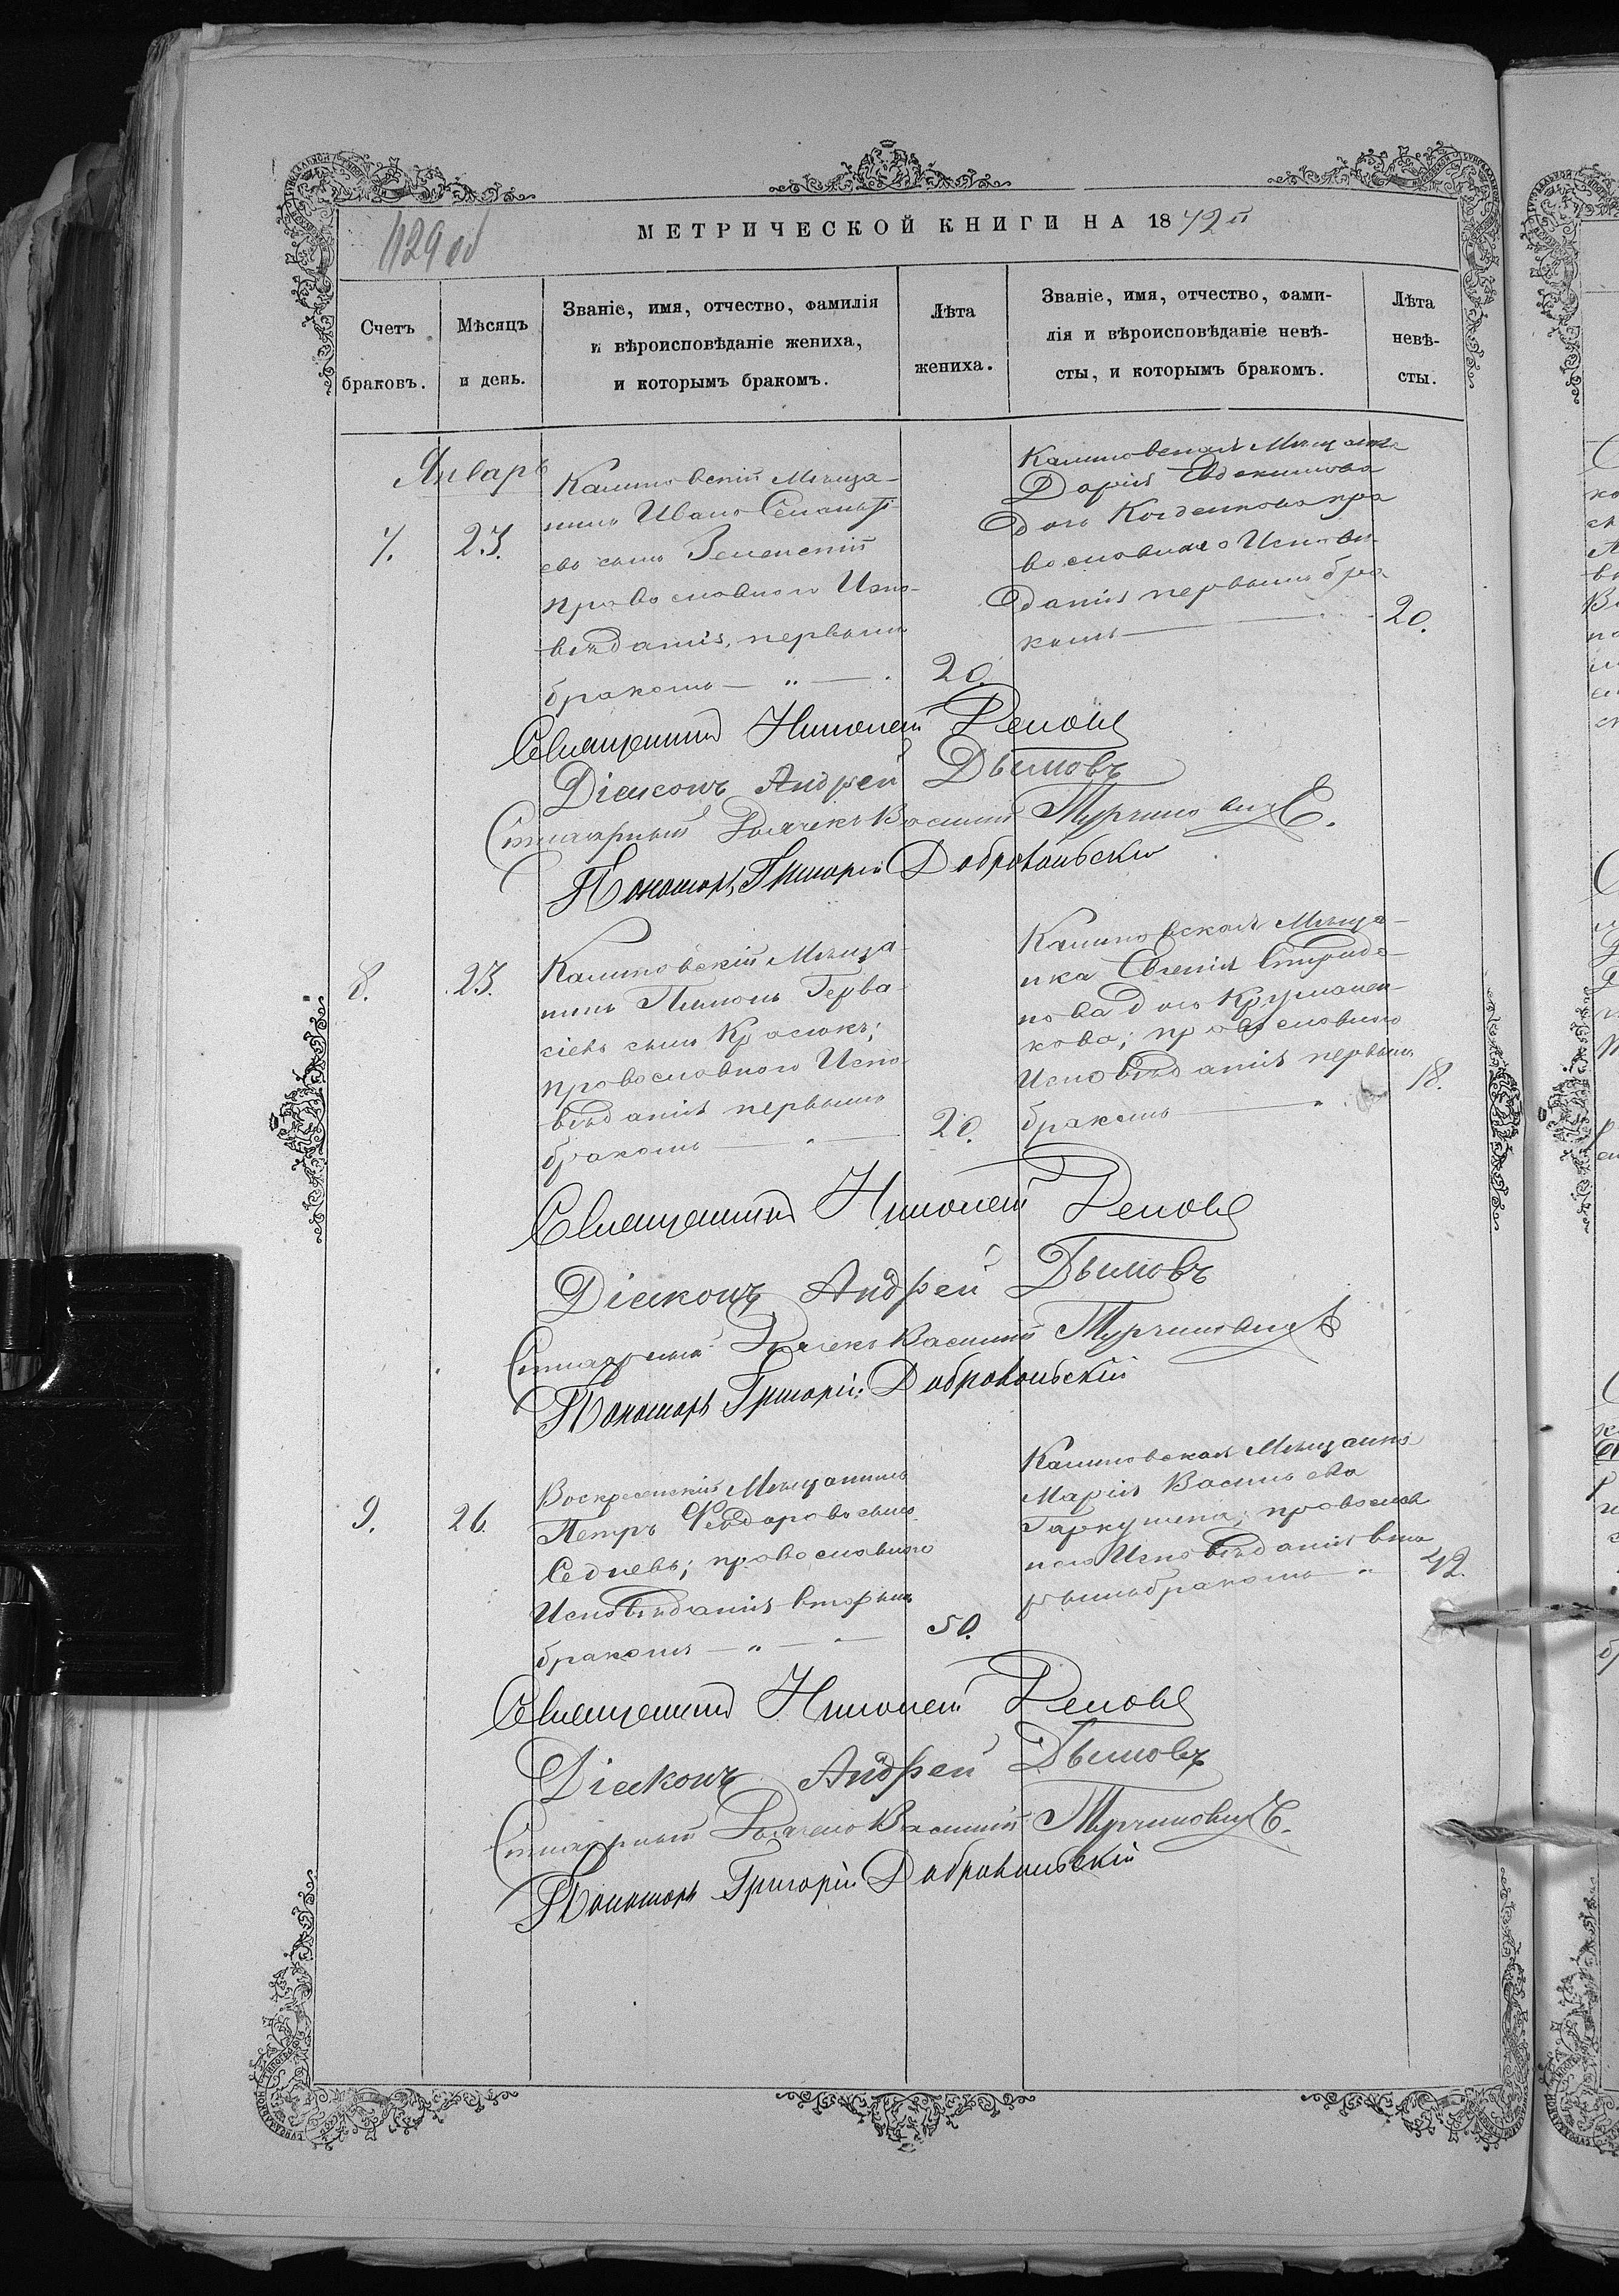 1129 об
МЕТРИЧЕСКОЙ КНИГИ НА 1872 й
Счетъ браковъ.
Мѣсяцъ и день.
Званіе, имя, отчество, фамилія
и вѣроисповѣданіе жениха,
и которымъ бракомъ.
Лѣта жениха.
Званіе, имя, отчество, фами-
лія и вѣроисповѣданіе невѣ-
сты, и которымъ бракомъ.
Лѣта невѣ-
сты.
Январь
7.
23.
мѣща-
нинъ Иванъ
евъ сынъ Зеленскій
православного Испо-
вѣданія, первымъ
бракомъ — " —
20.
Мѣщанка
Дарія Евдокимова
дочь пра
вославнаго Исповѣ-
данія первымъ бра
комъ
20.
Священникъ Николай
Діаконъ Андрей Дымовъ
Дьячекъ Василій
Пономарь Григорій Добровольскій
8.
23.
мѣща-
нинъ Герва-
сіевъ сынъ
православного Испо
вѣданія первымъ
бракомъ
20.
Мѣща-
нка Евгенія Спиридо-
нова дочь
кова; православного
Исповѣданія первымъ
бракомъ
18.
Священникъ Николай
Діаконъ Андрей Дымовъ
Дьячекъ Василій
Пономарь Григорій Добровольскій
9.
26.
Воскресенскій Мѣщанинъ
Петръ Ѳедоровъ сынъ
Седневъ; православного
Исповѣданія вторымъ
бракомъ — " —
50.
Мѣщанка
Марія Васильева
Гаркушена; православ
ного Исповѣданія вто
рымъ бракомъ — "
42.
Священникъ Николай
Діаконъ Андрей Дымовъ
Дьячекъ Василій
Пономарь Григорій Добровольскій